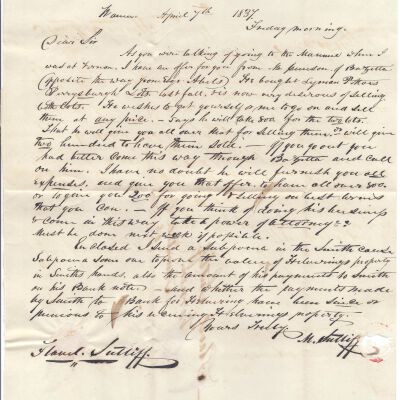 Warren April 7th 1837
Friday morning.
Dear Sir
As you were talking of going to the Maumee when I
was at Vernon. I have an offer for you from Mr. Jameson of Bazetta
(opposite the way from Esqr ). He bought Lyman Potters
Perrysburgh Lots last fall, & is now very desirous of selling
the lots. He wishes to get yourself or me to go on and sell
them at any price. — Says he will take 800 for the two lots.
That he will give you all over that for selling them, or will give
two hundred to have them sold. — If you go out you
had better come this way through Bazetta and call
on him. I have no doubt he will furnish you all
expenses, and give you that offer, to have all over 800.
or to give you 200 for going & selling on best terms
that you can. — If you think of doing his business
& come in this way take a power of attorney &c
must be done next week if possible.
Enclosed I send a Subpoena in the Smith cause
Subpoena some one to prove the value of property
in Smiths hands. also the amount of his payments to Smith
on his Bank notes. and whether the payments made
by Smith to Bank for have been since or
previous to his receiving property.
Yours Truly
M. Sutliff
Flavel. Sutliff.